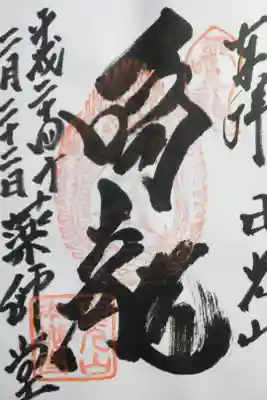 奉拝 日光山
鳴龍
平成二十四年
二月二十二日
薬師堂